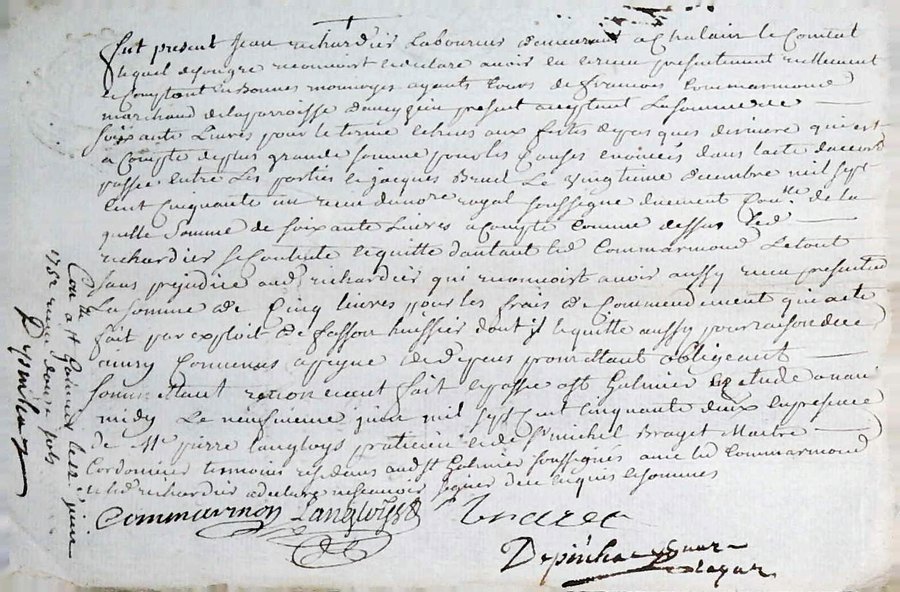 fut present Jean richardier Laboureur demeurant a Chalain le Comtat
lequel degre reconnoist et declare avoir eu et receu presentement reellement
et Comptant en bonnes monnoyes ayants Cours de francois Commarmond
marchand de la parroisse present acceptant La somme de
soixante Livres pour le terme echeus aux festes de pasques derniere qui est
a Compte de plus grande somme pour les Causes enoncées dans l'acte d'accord
passée entre Les parties et jacques Bruel Le vingtieme decembre mil sept
Cent Cinquante un receu du nore royal soussigné duement Con.lle de la
quelle somme de soixante Livres a compte comme dessus led
richardier se contente et quitte d'autant led Commarmond Le tout
sans prejudice aud richardier qui reconnoist avoir aussy receu presentement
La somme de Cinq livres pour les frais de Commendement qui a ete
fait par exploit de fasson huissier dont il le quitte aussy pour raison de ce
ainsy Convenus a peyne de depens promettant obligeant
soummettant renonceant fait et passé a st Galmier en etude avant
midy Le neufvieme juin mil sept Cent Cinquante deux en presence
de Me pierre Langloys praticien et de sr michel Braget Maitre
Cordonnier temoins residans aud st Galmier soussignés avec led Commarmond
et led richardier a declaré ne scavoir signer de ce enquis et sommés
Commarmon Langloys
Depinhac nore
royar
Con.lle a st Galmier le 12 juin
1752 receu douze sols
Depinhac